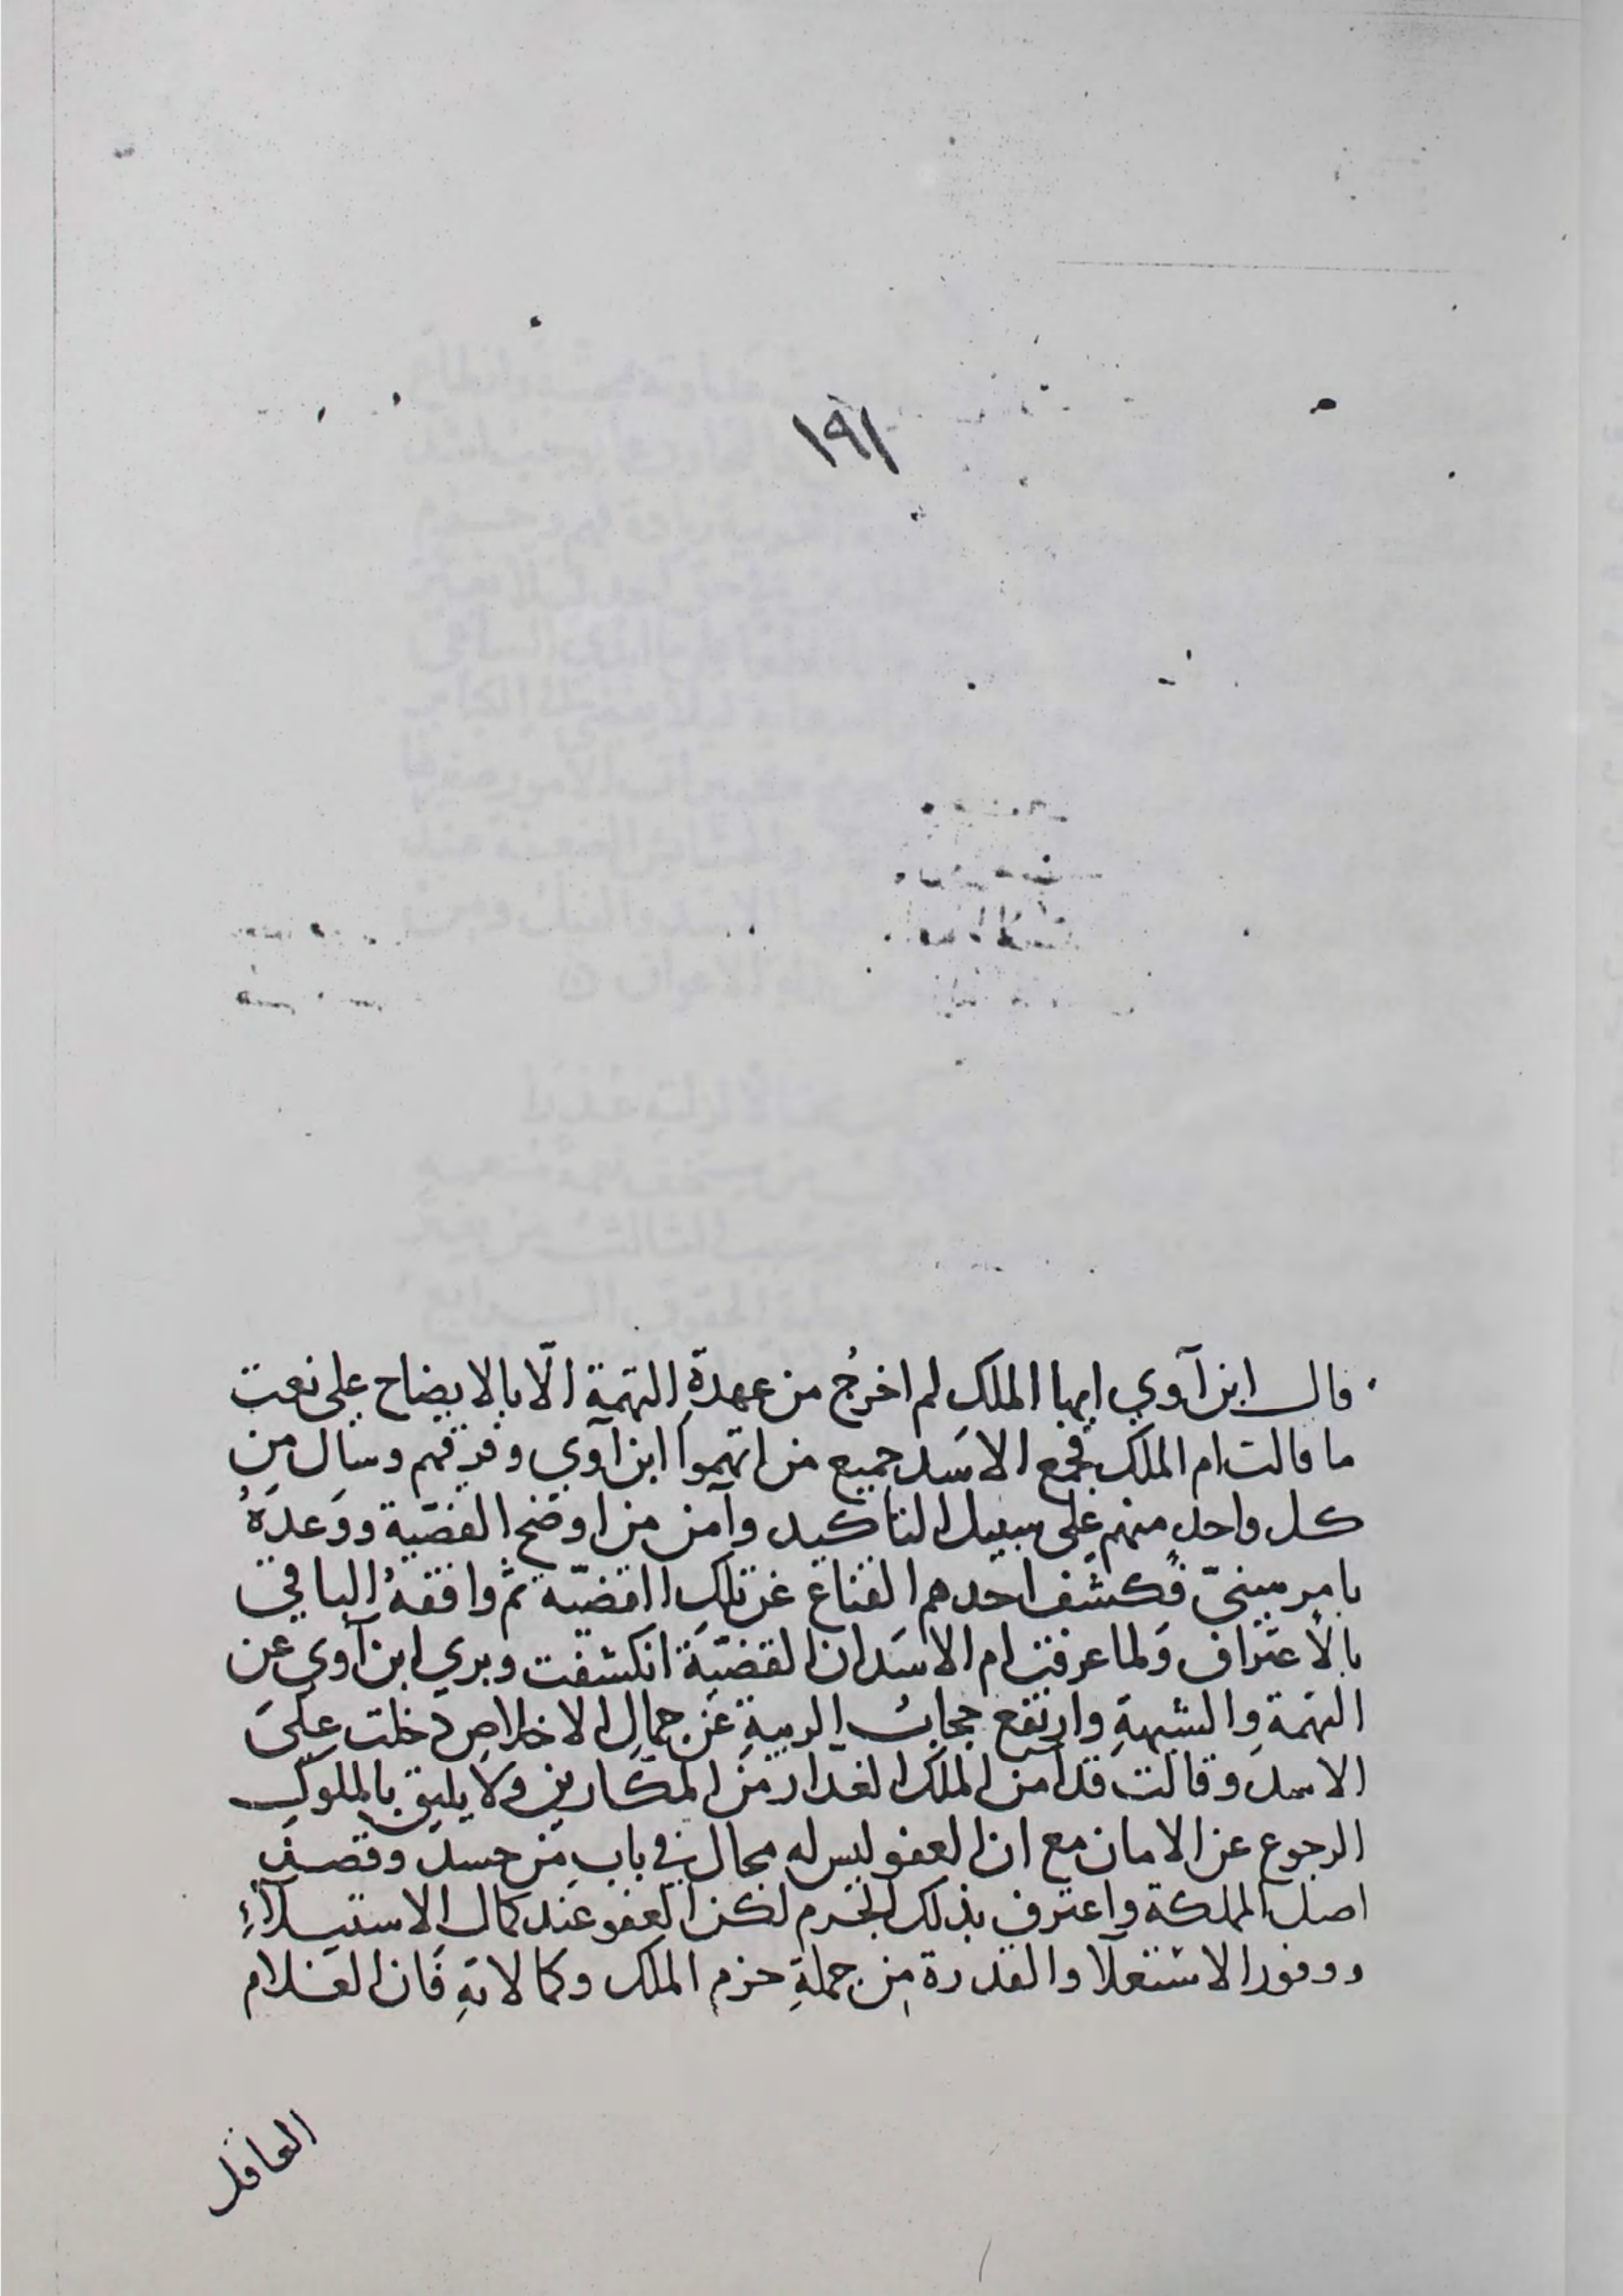 ١٩١
قال ابن آوي ايها الملك لم اخرجُ من عهدةِ التهمة الّا بالايضاح على نعت
ما قالت ام الملك فجمع الاسَد جميع من اتهموا ابن آوي وفرقهم وسأل مِن
كل واحدٍ منهم على سبيل التاكيد وآمن من اوضح القضيّة ووَعدَهُ
بامرٍ سنيّ فكشف احدهم القناع عن تلك القضيّة ثم وافقهُ الباقي
بالاعتراف ولما عرفت ام الاسَد ان القضيّة انكشفت وبري ابن آوي عن
التهمة والشبهةِ وارتفع حجابُ الريبةِ عن جمال الاخلاص دخلت علىَ
الاسد وقالت قد آمن الملك الغدار من المكارين ولا يليق بالملوك
الرجوع عن الامان مع ان العفو ليس له مجال في باب من حسد وقصد في
اصل المملكة واعترف بذلك الجرم لكن العفو عند كمال الاستيلاءِ
ووفور الاستعلا والقدرة من جملةِ حزم الملك وكمالاتهِ فان الغلام
العاقل